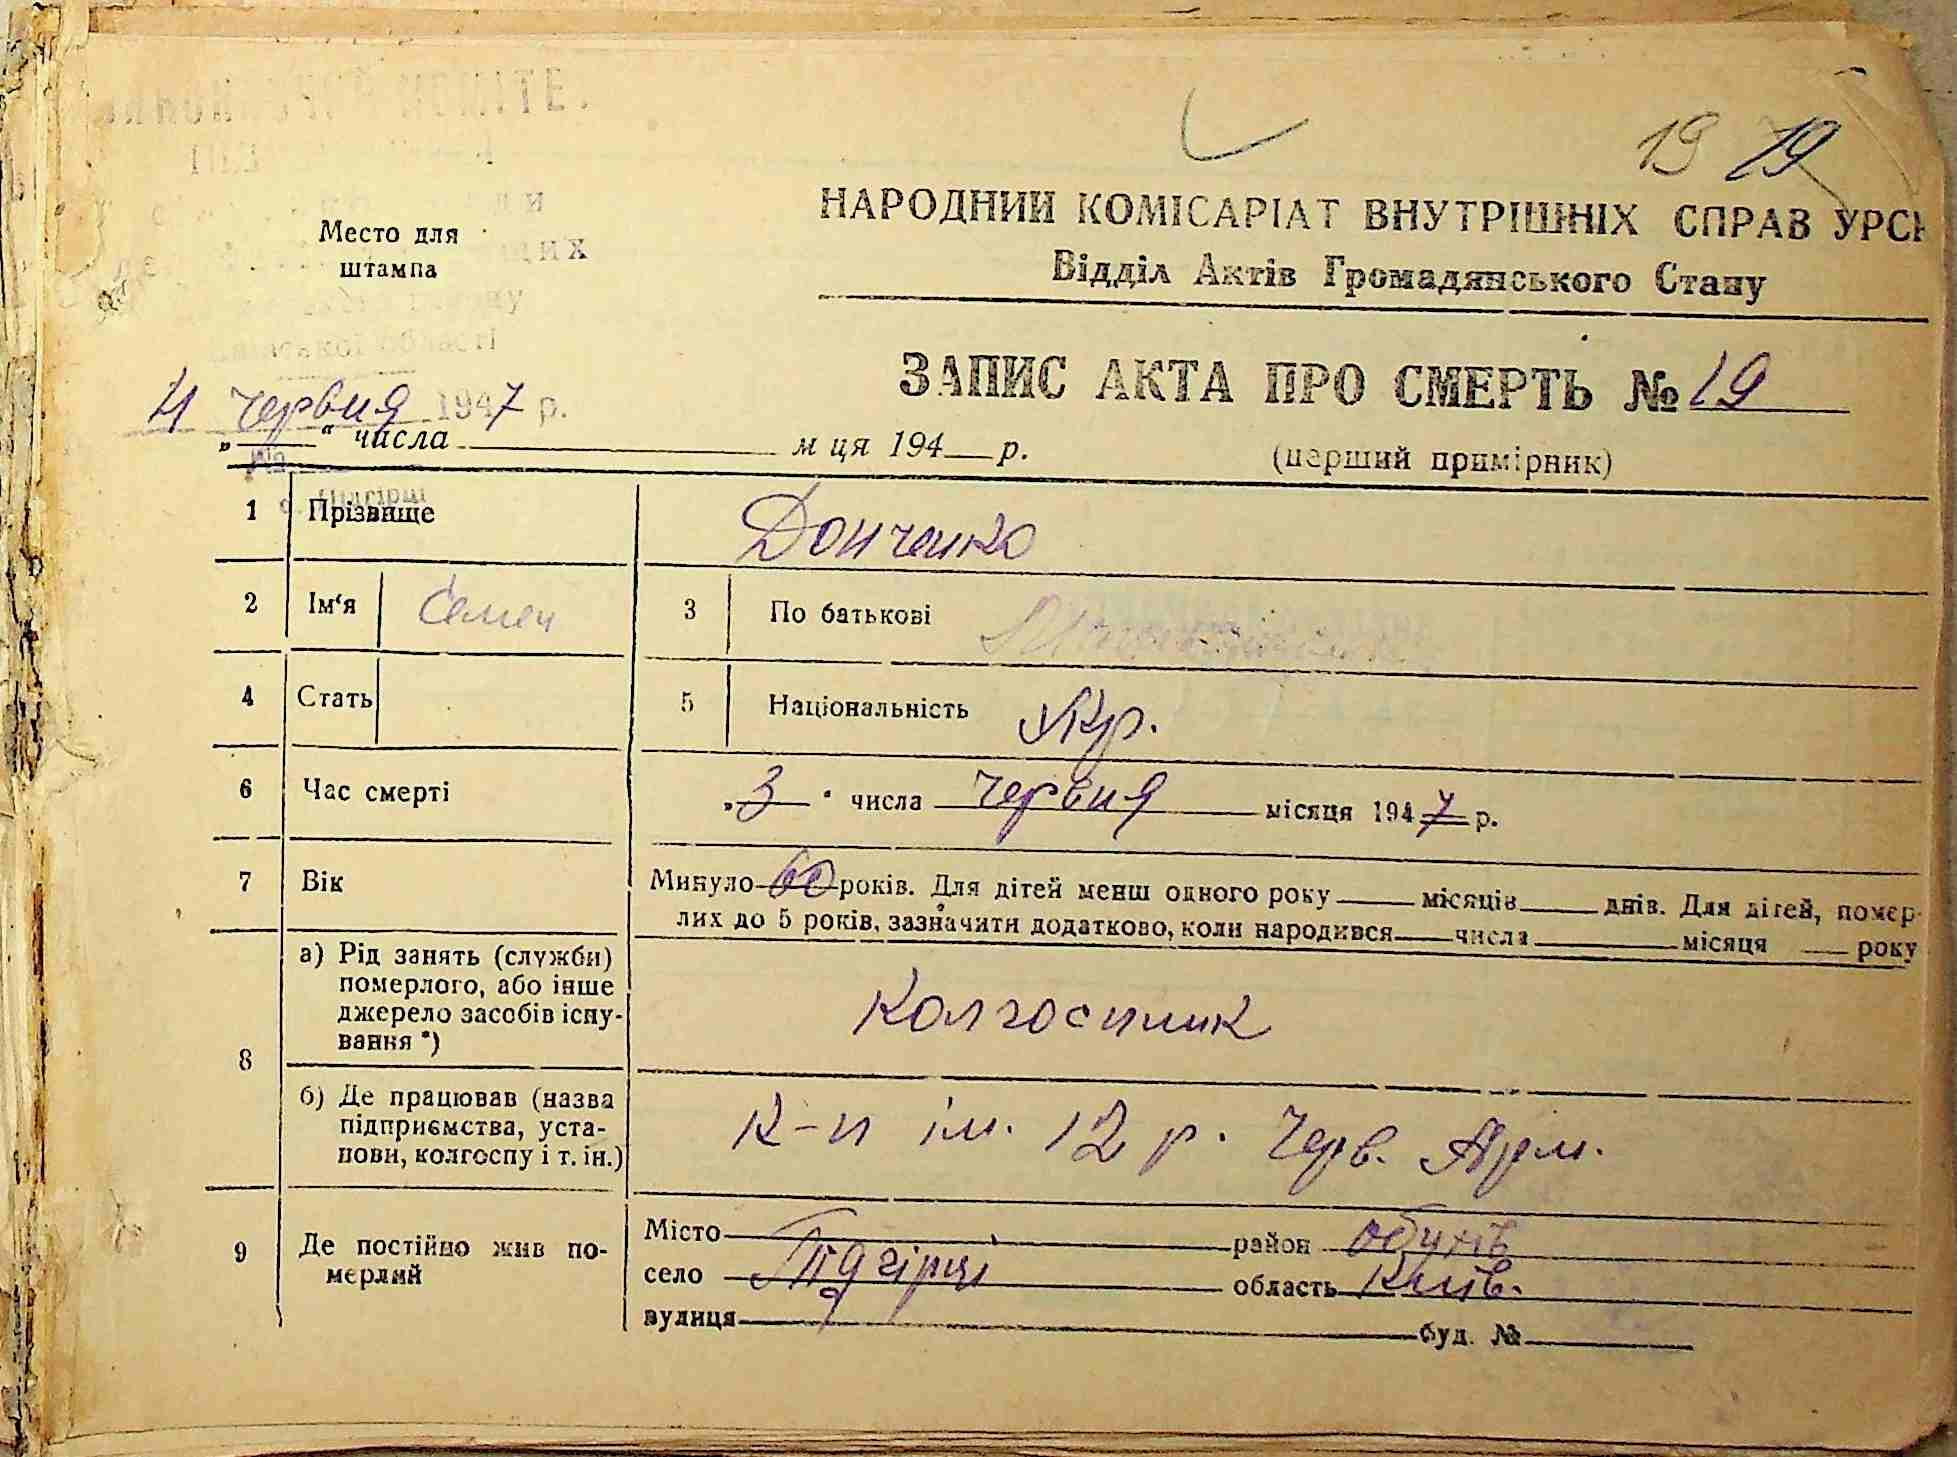 19 19
Место для
штампа
НАРОДНИЙ КОМІСАРІАТ ВНУТРІШНІХ СПРАВ УРСР
Відділ Актів Громадянського Стану
області
4 червня 1947 р.
„ “ числа м ця 194 р.
ЗАПИС АКТА ПРО СМЕРТЬ № 19
(перший примірник)
с. Підгірці
1 Прізвище Донченко
2 Ім‘я Семен 3 По батькові
4 Стать 5 Національність Укр.
6 Час смерті „3“ числа червня місяця 1947 р.
7 Вік Минуло 60 років. Для дітей менш одного року місяців днів. Для дітей, помер-
лих до 5 років, зазначити додатково, коли народився числа місяця року
8 а) Рід занять (служби)
померлого, або інше
джерело засобів існу-
вання *)
Колгоспник
б) Де працював (назва
підприємства, уста-
нови, колгоспу і т. ін.)
К-п ім. 12 р. Черв. Арм.
9 Де постійно жив по-
мерлий
Місто район Обухів
село Підгірці область Київ.
вулиця буд. №